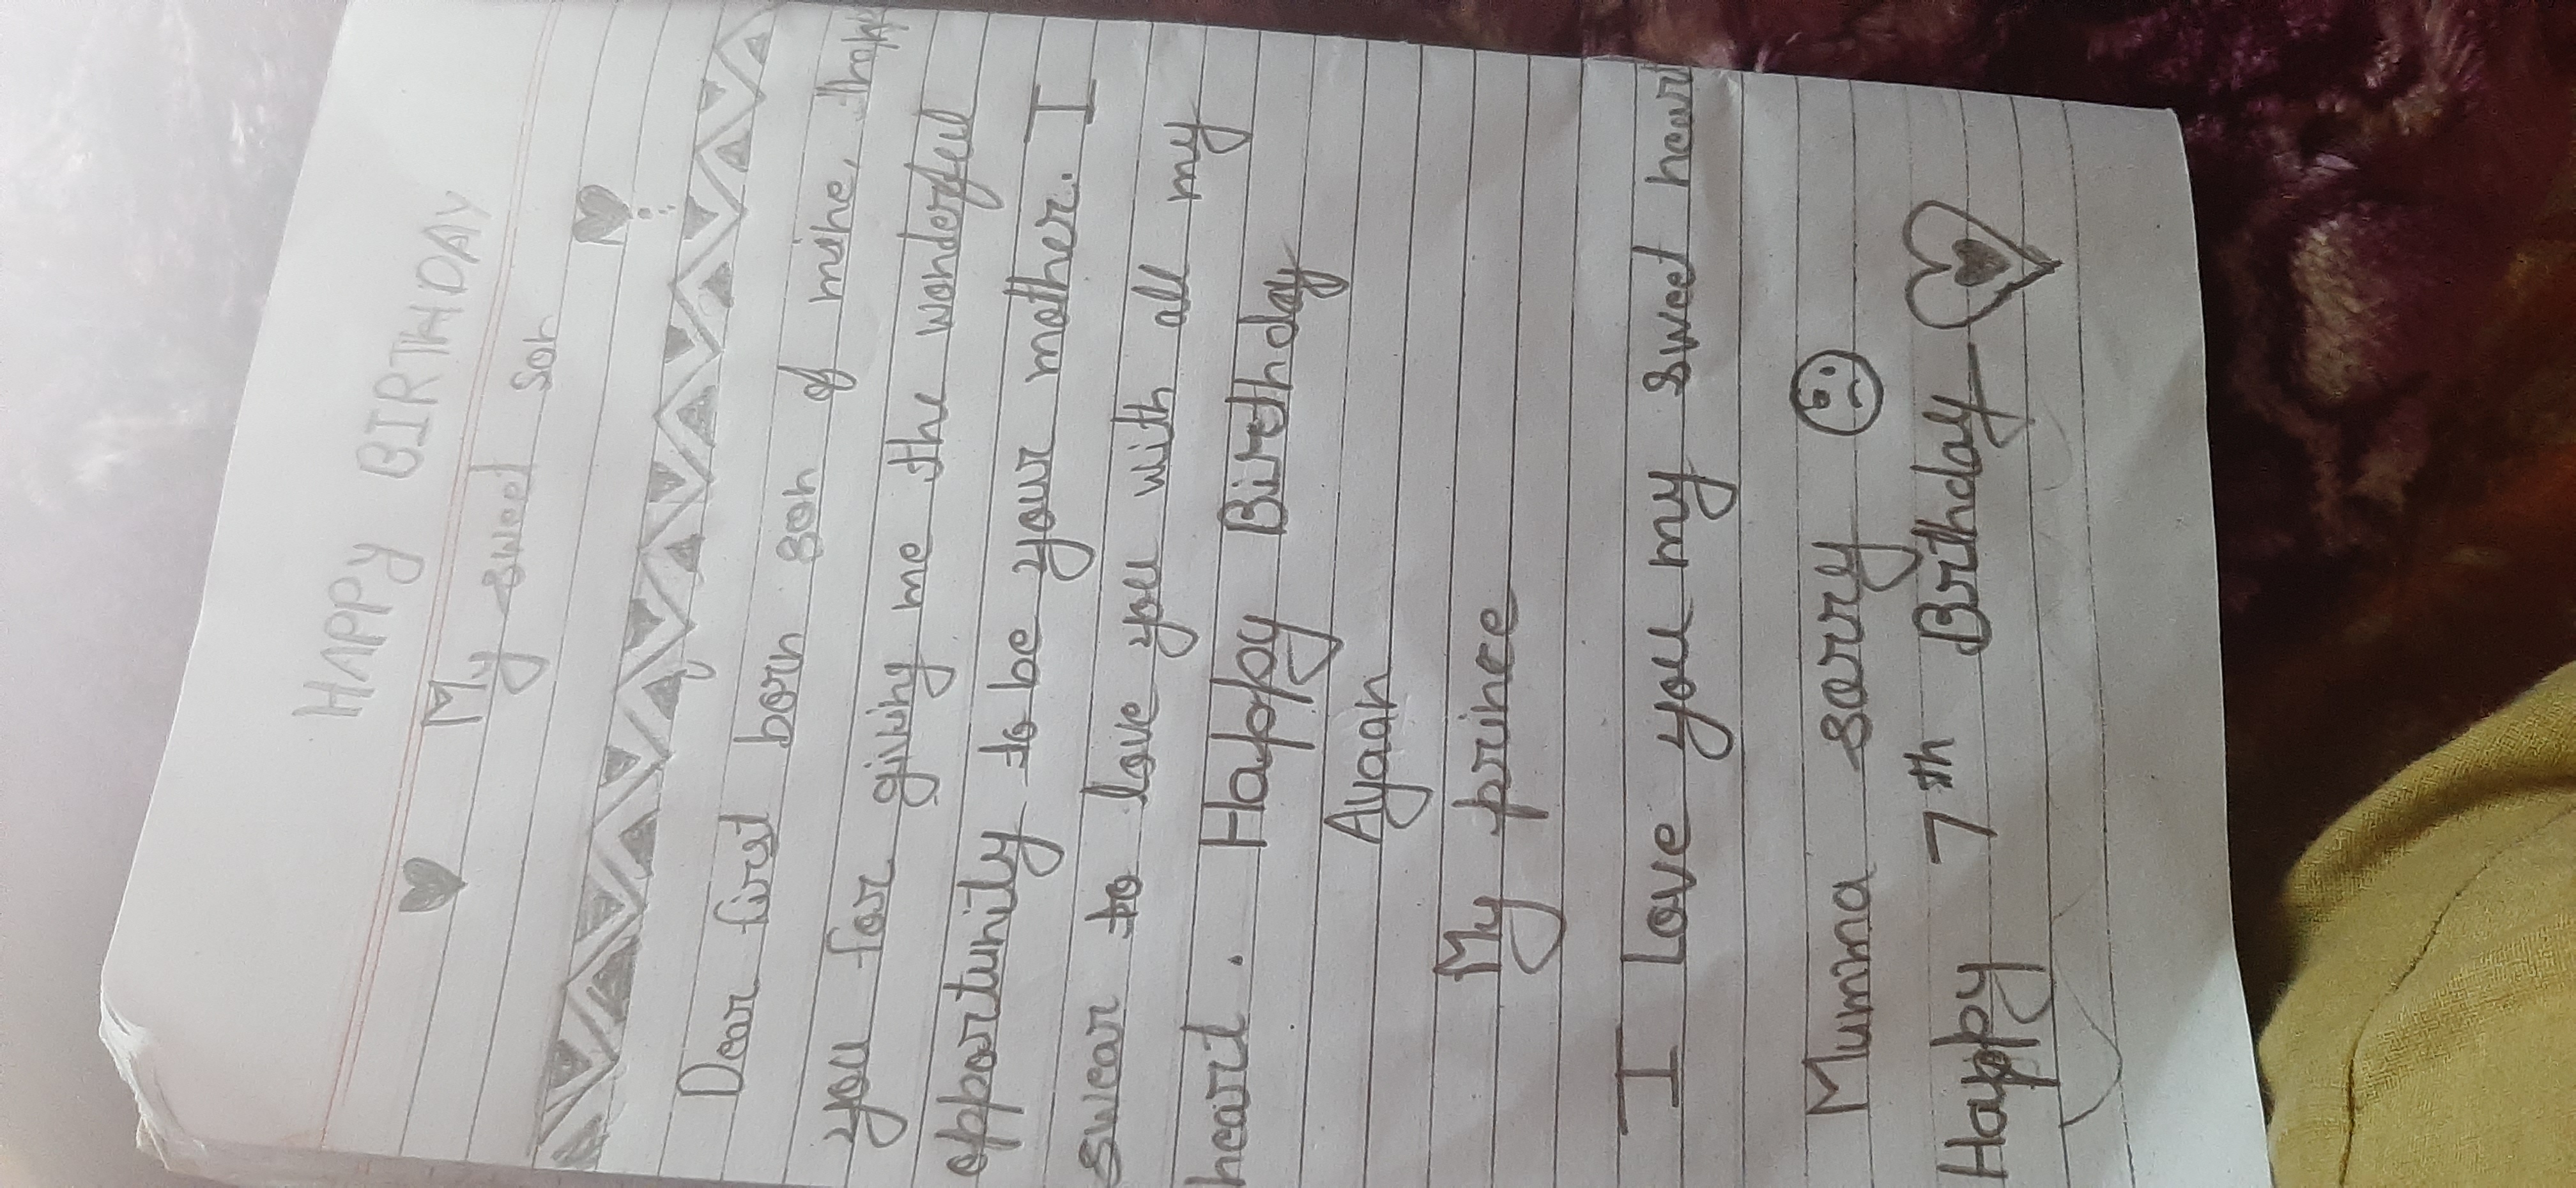 HAPPY BIRTHDAY
My sweet son
Dear first born son of mine, thank
you for giving me the wonderful
opportunity to be your mother. I
swear to love you with all my
heart. Happy Birthday
Ayaan
My prince
I Love you my sweet heart
Mumma sorry
Happy 7th Birthday